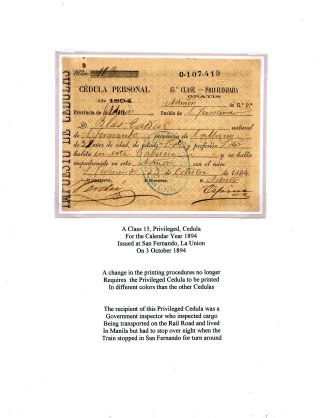 Núm. 102 0-107.419
IMPUESTO DE CEDULAS
CÉDULA PERSONAL 15.ª CLASE.—PRIVILEGIADA
AÑO 1894 GRATIS
Provincia de Union Pueblo de S. Fernando
D. natural
de S. Fernando provincia de
de años de edad, de estado y profesion
habita en esta y se halla
empadronado en este con el núm.
S. Fernando 3 de Octubre de 1894
A Class 15, Privileged, Cedula
For the Calendar Year 1894
Issued at San Fernando, La Union
On 3 October 1894
A change in the printing procedures no longer
Requires the Privileged Cedula to be printed
In different colors than the other Cedulas
The recipient of this Privileged Cedula was a
Government inspector who inspected cargo
Being transported on the Rail Road and lived
In Manila but had to stop over night when the
Train stopped in San Fernando for turn around